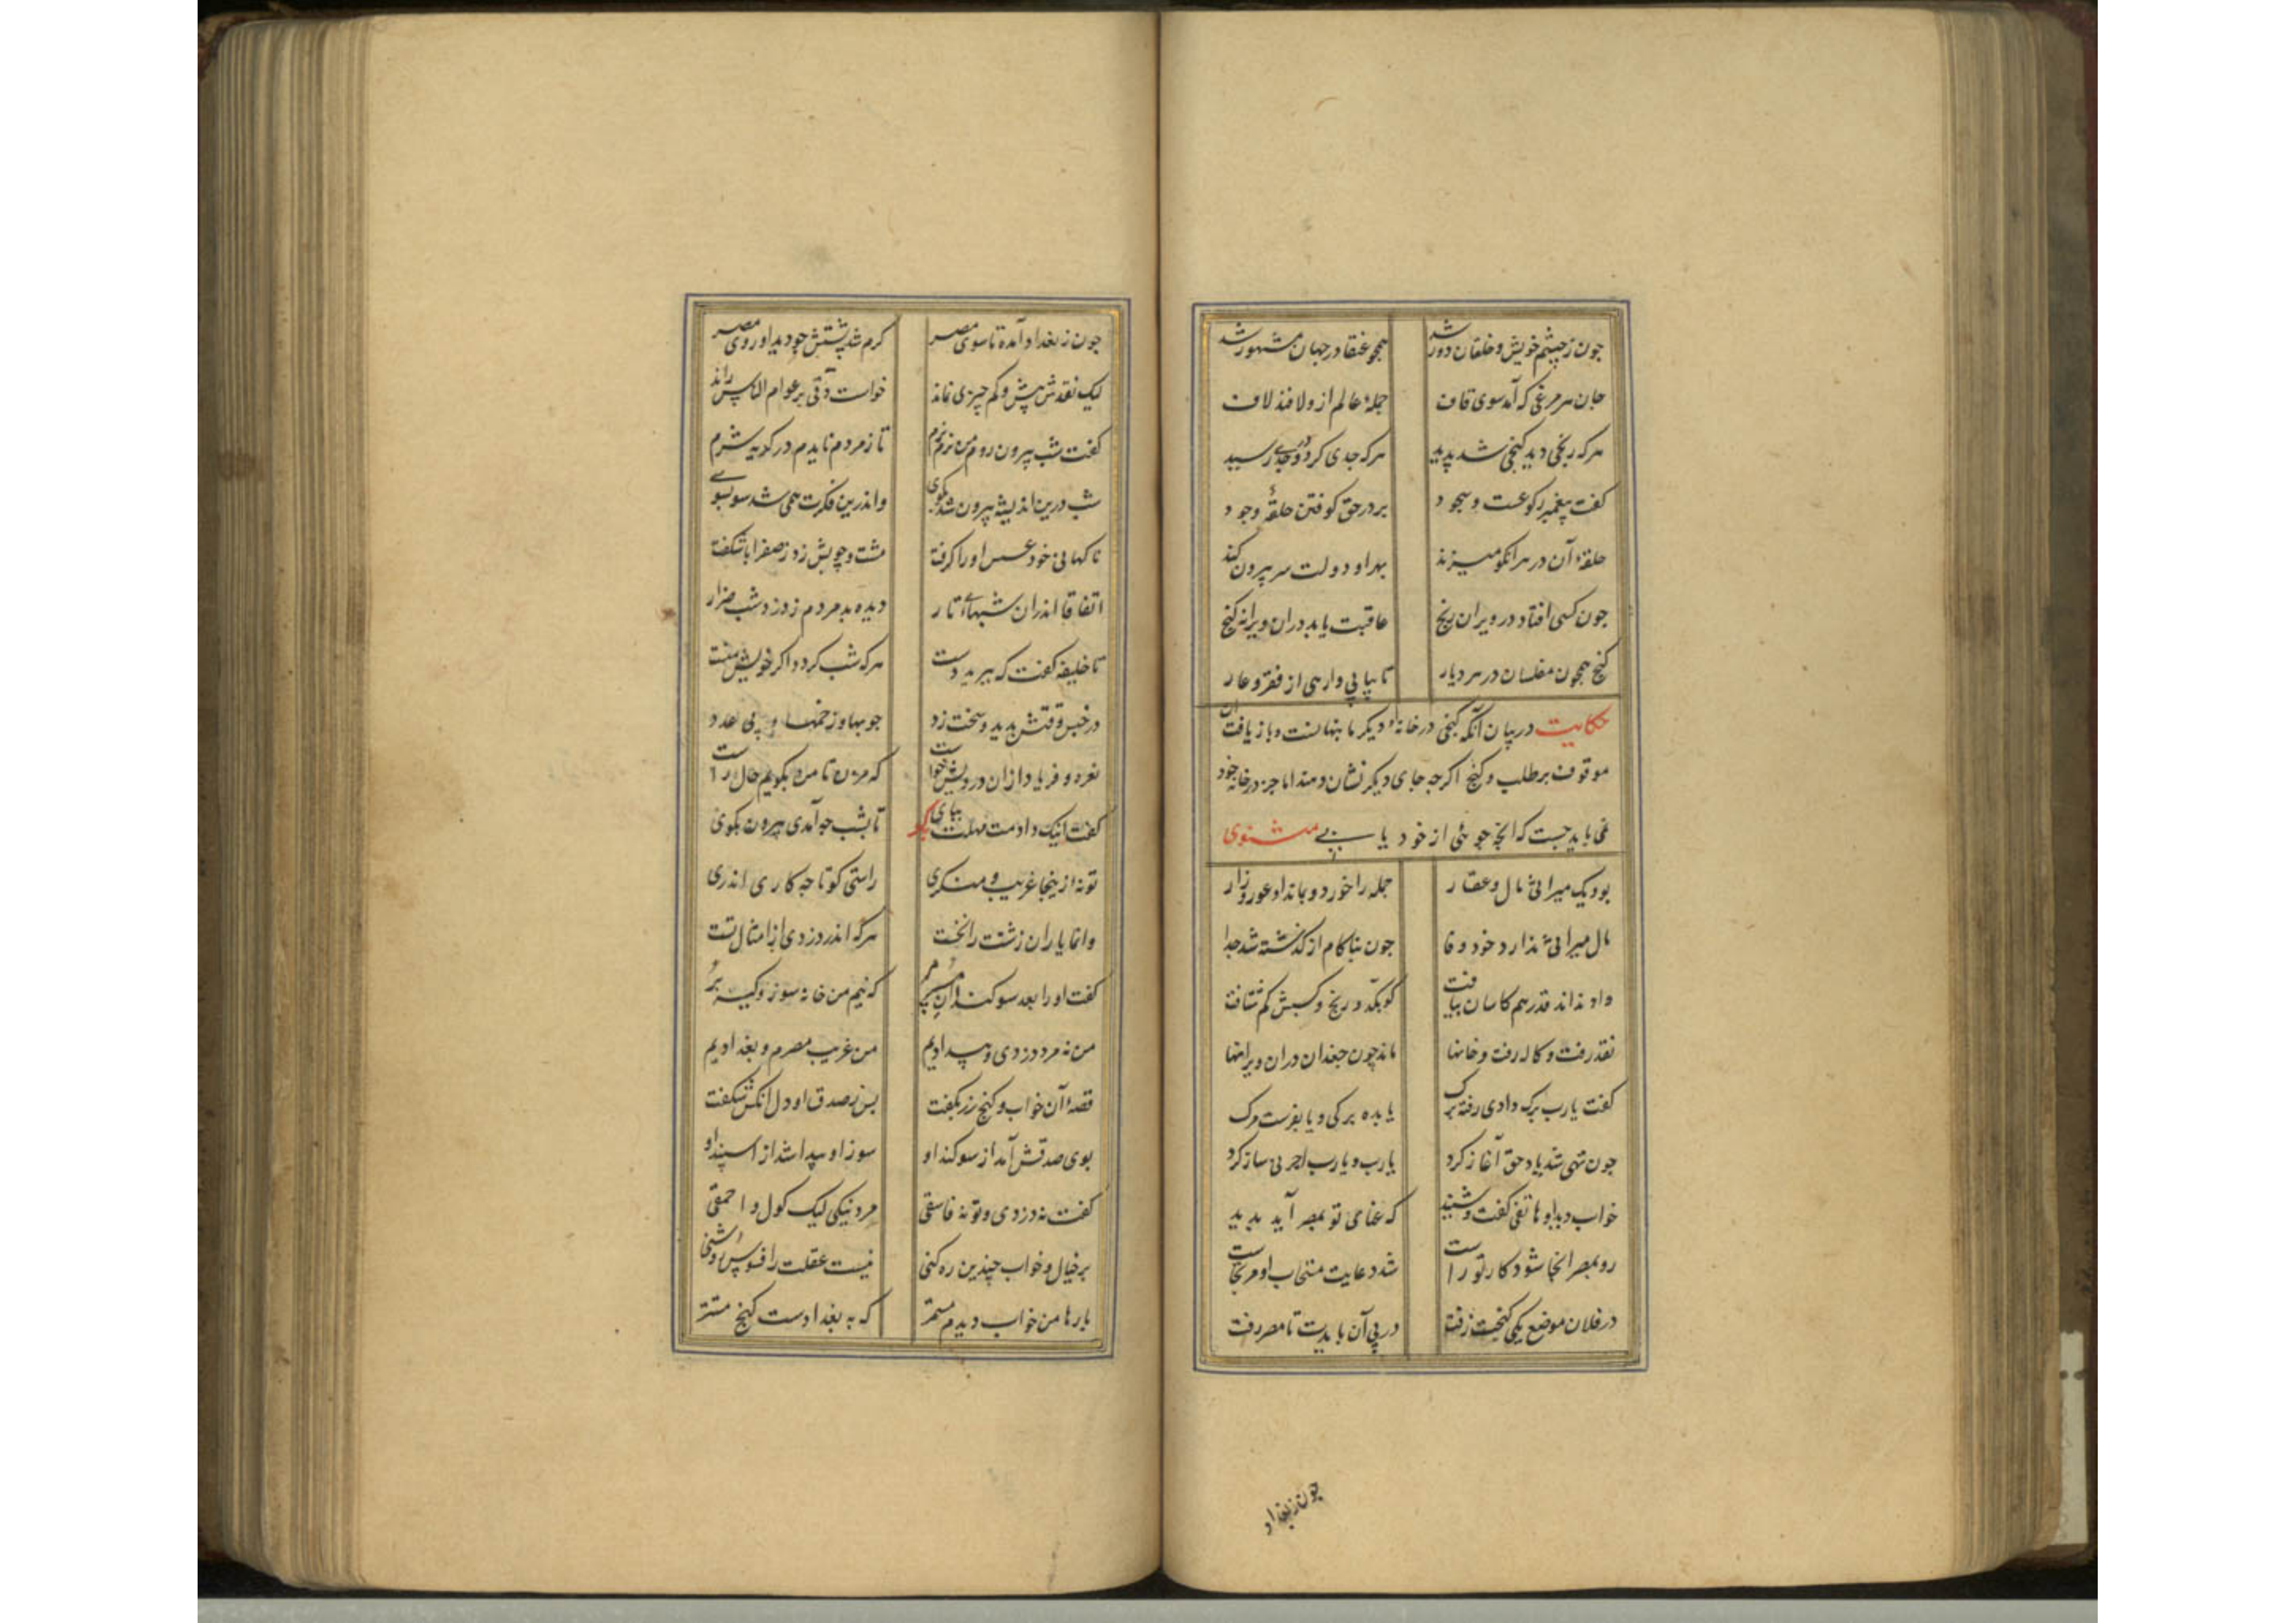 چون ز چشم خویش و خلقان دور شد همچو عنقا در جهان مشهور شد
جان هر مرغی که آمد سوی قاف جملهٔ عالم ازو لافند لاف
هرکه رنجی دید گنجی شد پدید هرکه جدی کرد در جدی رسید
گفت پیغمبر رکوعست و سجود بر در حق کوفتن حلقهٔ وجود
حلقهٔ آن در هر انکو میزند بهر او دولت سر بیرون کند
چون کسی افتاد در ویران رنج عاقبت یابد دران ویرانه گنج
گنج همچون مفلسان در هر دیار تا بیابی وارهی از فقر و عار
حکایت در بیان آنکه گنجی در خانهٔ دیگر ما پنهانست و باز یافت آن
موقوف بر طلب و گنج اگرچه جای دیگر نشان دهند اما جز در خانه خود
نمی باید جست که انچه جوئی از خود یابی مثنوی
بود یک میراثی مال و عقار جمله را خورد و بماند او عور و زار
مال میراثی ندارد خود وفا چون بناکام از گذشته شد جدا
او نداند قدر هم کاسان بیافت کو بکد و رنج و کسبش کم شتافت
نقد رفت و کاله رفت و خانها ماند چون جغدان دران ویرانها
گفت یارب برگ دادی رفت برگ یا بده برگی و یا بفرست مرگ
چون تهی شد یاد حق آغاز کرد یارب و یارب اجرنی ساز کرد
خواب دید او هاتفی گفت و شنید که غنای تو بمصر آید پدید
رو بمصر انجا شود کار تو راست شد دعایت مستجاب او مرتجاست
در فلان موضع یکی گنجیست زفت در پی آن بایدت تا مصر رفت
چون ز بغداد
چون ز بغداد آمد تا سوی مصر گرم شد پشتش چو دید او روی مصر
لیک نقدش بیش و کم چیزی نماند خواست دقی بر عوام الناس راند
گفت شب بیرون روم من نرم نرم تا ز مردم نایدم در گدیه شرم
شب درین اندیشه بیرون شد بکوی واندرین فکرت همی شد سو بسوی
ناگهانی خود عسس او را گرفت مشت و چوبش زد ز صفرا ناشکفت
اتفاقا اندران شبهای تار دیده بد مردم ز دزد شب ضرار
تا خلیفه گفت که ببرید دست هرکه شب گردد اگر خویش منست
در چنین وقتش بدید و سخت زد چوبها و زخمها و بی عدد
نعره و فریاد ازان درویش خواست که مزن تا من بگویم حال راست
گفت اینک دادمت مهلت بگو تا بشب چه آمدی بیرون بگوی
تو نه ازینجا غریب و منکری راستی گو تا چه کاری اندری
وانما یاران زشتت را نخست هرکه اندر دزدی از امثال تست
گفت او را بعد سوگندان پر که نیم من خانه سوز و کیسه بر
من نه مرد دزدی و بیدادیم من غریب مصرم و بغدادیم
قصهٔ آن خواب و گنج زر بگفت پس ز صدق او دل انکس شکفت
بوی صدقش آمد از سوگند او سوز او پیدا شد از اسپند او
گفت نه دزدی و تو نه فاسقی مرد نیکی لیک گول و احمقی
بر خیال و خواب چندین ره کنی نیست عقلت را فسوس روشنی
بارها من خواب دیدم مستمر که به بغدادست گنج مستتر